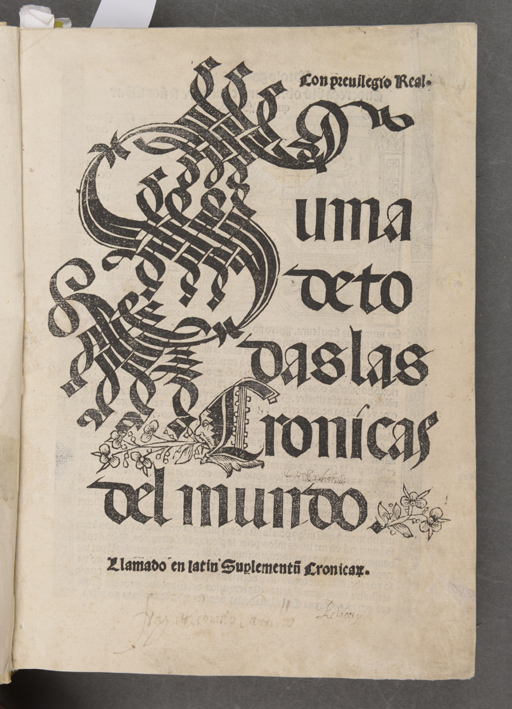 Con preuilegio Real.
Suma
de to
das las
Cronicas
del mundo.
Llamado en latin Suplementũ Cronicaꝝ.